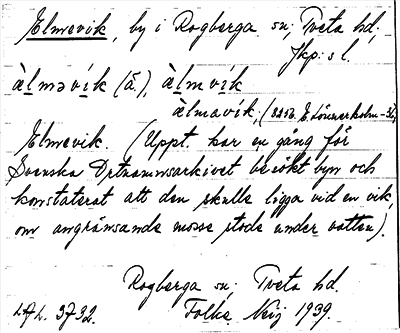 Elmevik, by i Rogberga sn; Tveta hd;
Jkp: s l.
àlməvík (ä.), àlmvík
àlmavík,
Elmevik. (Uppt. har en gång för
Svenska Ortnamnsarkivet besökt byn och
konstaterat att den skulle ligga vid en vik,
om angränsande mosse stode under vatten).
Rogberga sn; Tveta hd.
3732. Folke Neij 1939.